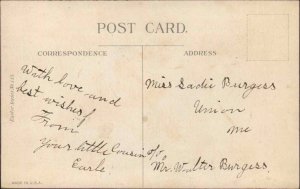 POST CARD.
CORRESPONDENCE
ADDRESS
With love and
best wishes
From
Your little Cousin
Earle
Miss Sadie Burgess
Union
Me
c/o
Mr. Walter Burgess.
MADE IN U.S.A.